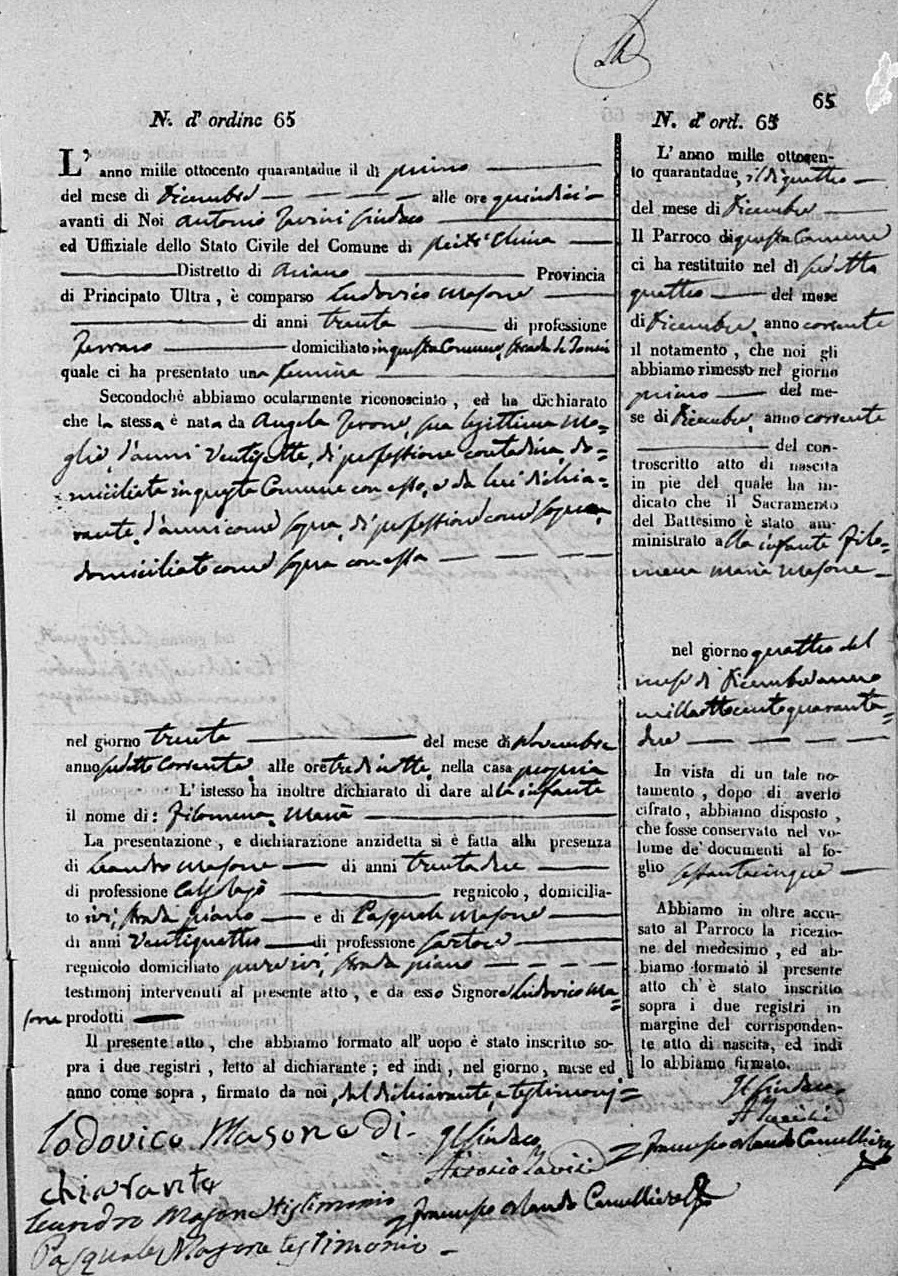 65
N. d' ordine 65
L' anno mille ottocento quarantadue il dì primo
del mese di Dicembre alle ore quindici
avanti di Noi Antonio Sindaco
ed Uffiziale dello Stato Civile del Comune di
Distretto di Ariano Provincia
di Principato Ultra, è comparso Ludovico Masone
di anni trenta di professione
Ferraro domiciliato in questa Comune, strada
quale ci ha presentato una femina
Secondochè abbiamo ocularmente riconosciuto, ed ha dichiarato
che la stessa è nata da Angela sua legittima mo=
glie, d'anni ventisette, di professione contadina do=
miciliata in questa Comune con esso, e da lui dichia=
rante, d'anni come sopra, di professione come sopra,
domiciliato come sopra con essa
nel giorno trenta del mese di Novembre
anno sudetto corrente, alle ore tredici nella casa propria
L' istesso ha inoltre dichiarato di dare alla infante
il nome di: Filomena Maria
La presentazione, e dichiarazione anzidetta si è fatta alla presenza
di Leandro Masone di anni trentadue
di professione Calzolajo regnicolo, domicilia-
to ivi, strada piano e di Pasquale Masone
di anni ventiquattro di professione sartore
regnicolo domiciliato pure ivi, strada piano
testimonj intervenuti al presente atto, e da esso Signore Ludovico Ma=
sone prodotti
Il presente atto, che abbiamo formato all' uopo è stato inscritto so-
pra i due registri, letto al dichiarante; ed indi, nel giorno, mese ed
anno come sopra, firmato da noi, dal dichiarante, e testimonj=
Lodovico Masone di-
chiarante
Il Sindaco
Leandro Masone testimonio
Pasquale Masone testimonio
Francesco Orlando Cancelliere
N. d' ord. 65
L' anno mille ottocen-
to quarantadue, il dì quattro
del mese di Dicembre
Il Parroco di questa Comune
ci ha restituito nel dì sudetto
quattro del mese
di Dicembre, anno corrente
il notamento, che noi gli
abbiamo rimesso nel giorno
primo del me-
se di Dicembre, anno corrente
del con-
troscritto atto di nascita
in piè del quale ha in-
dicato che il Sacramento
del Battesimo è stato am-
ministrato alla infante Filo=
mena Maria Masone
nel giorno quattro del
mese di Dicembre anno
milleottocentoquaranta=
due
In vista di un tale no-
tamento, dopo di averlo
cifrato, abbiamo disposto,
che fosse conservato nel vo-
lume de' documenti al fo-
glio sessantacinque
Abbiamo in oltre accu-
sato al Parroco la ricezio-
ne del medesimo, ed ab-
biamo formato il presente
atto ch' è stato inscritto
sopra i due registri in
margine del corrisponden-
te atto di nascita, ed indi
lo abbiamo firmato.
Il Sindaco
Francesco Orlando Cancelliere